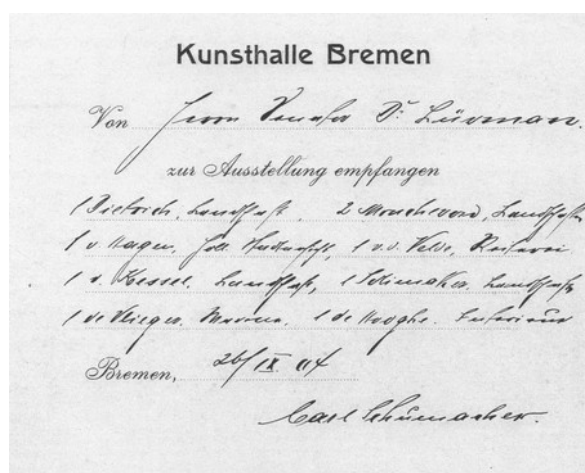 Kunsthalle Bremen
Von Herrn Senator Dr. Lürman.
zur Ausstellung empfangen
1 Dietrich, Landschaft, 2 Moucheron, Landschaften
1 v. Hagen, holl. 1 v. d. Velde, Reiterei
1 v. Kessel, Landschaft, 1 Landschaft
1 de Vlieger, Marine, 1 de Hooghe. Interieur
Bremen, 26/IX 04
Carl Schünemacher.